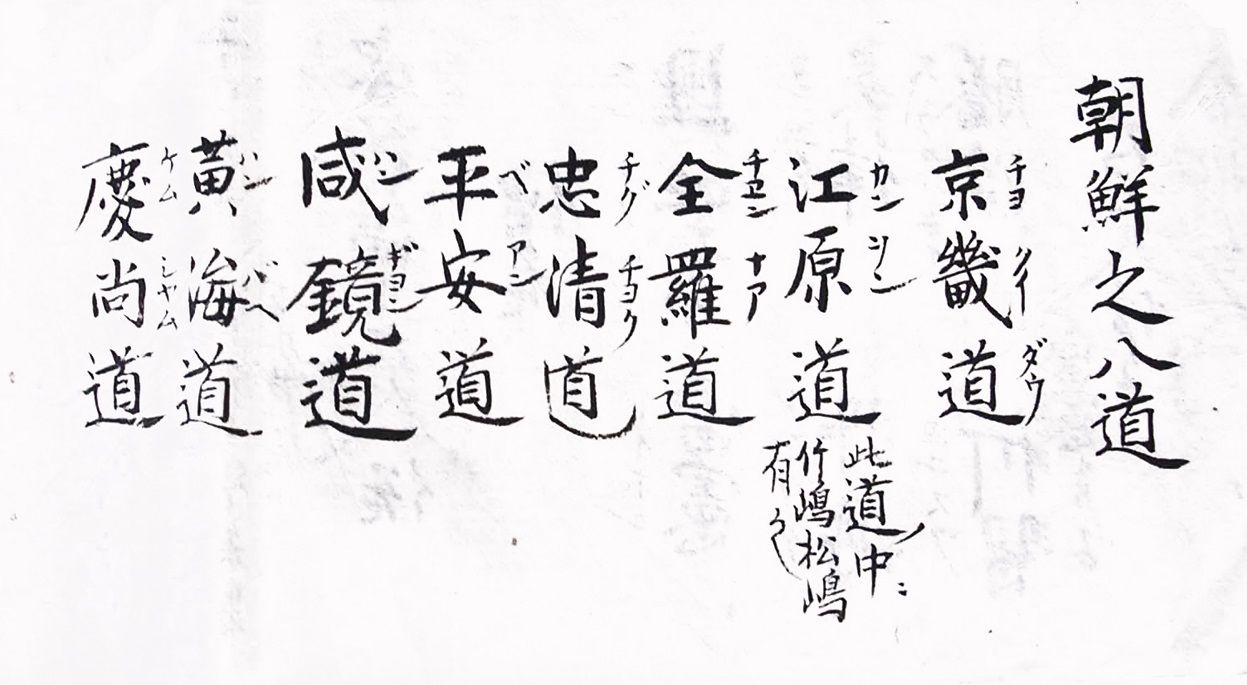 朝鮮之八道
京畿道
チヨ クイ ダウ
江原道
カン ヲン
此道中ニ
竹嶋松嶋
有之
全羅道
チエン ナア
忠清道
チグ チヨク
平安道
ベ アン
咸鏡道
ハン ギヨン
黄海道
ハン バヘ
慶尚道
ケム シヤム